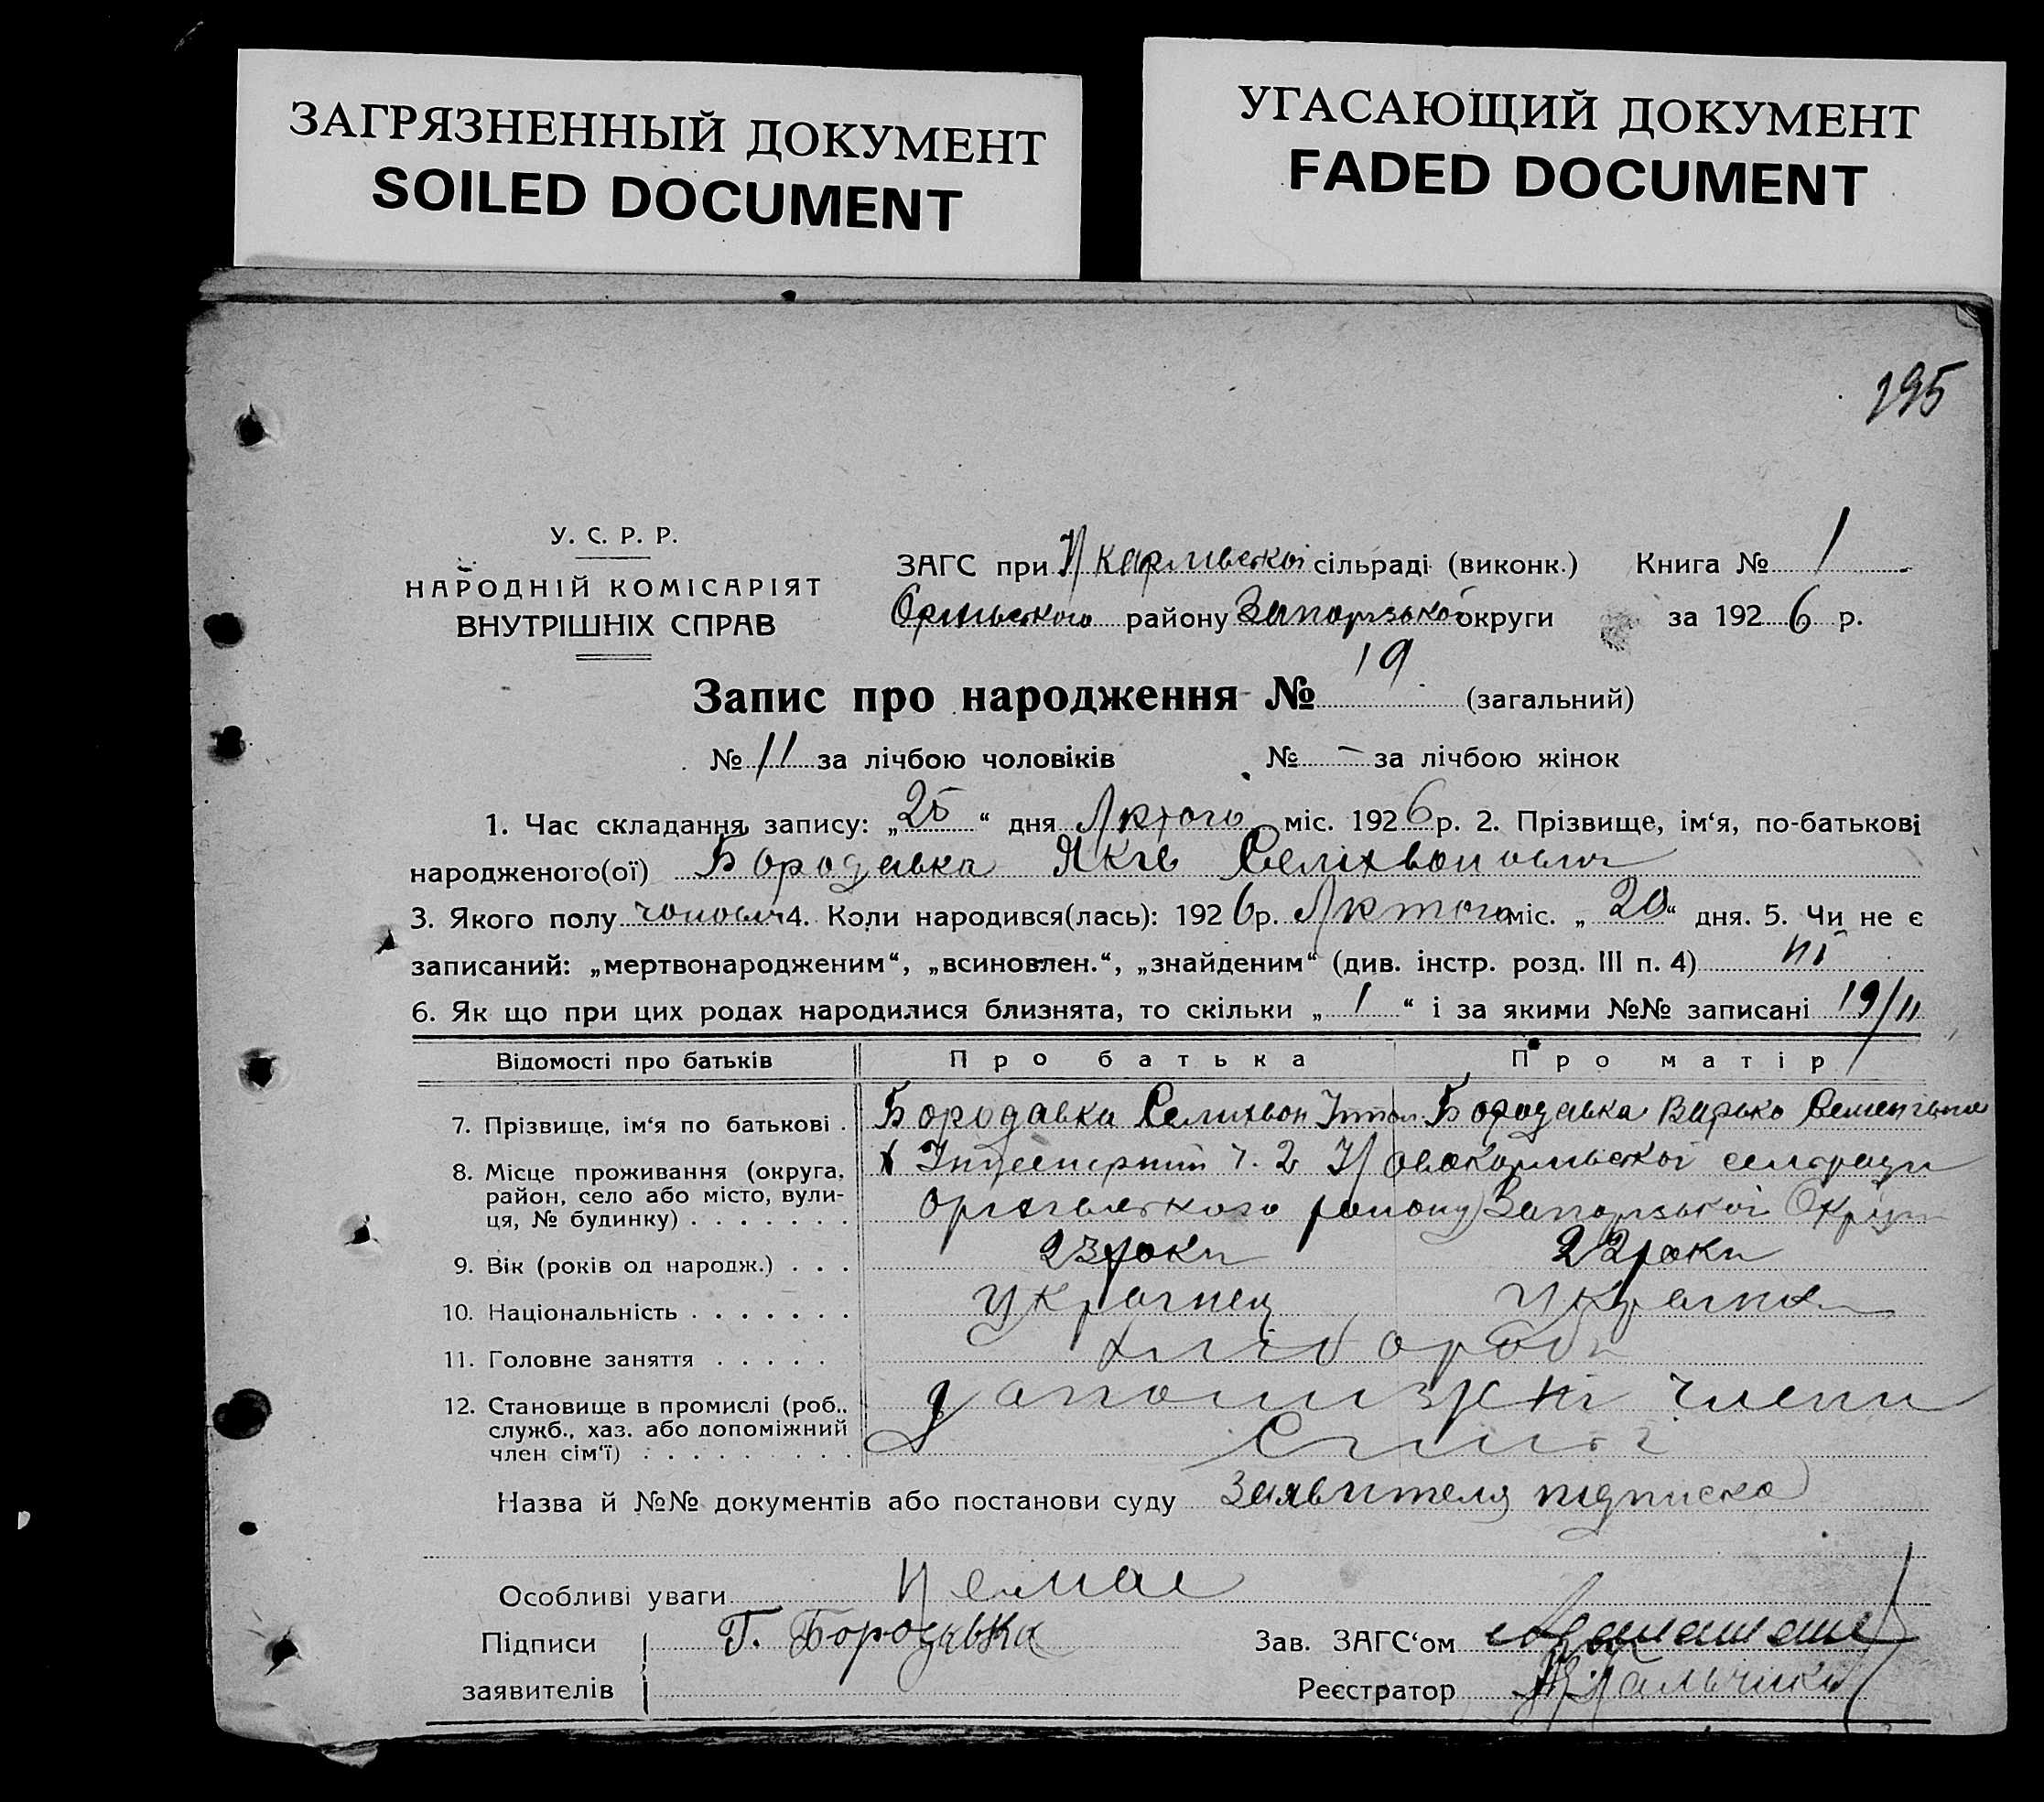 ЗАГРЯЗНЕННЫЙ ДОКУМЕНТ
SOILED DOCUMENT
УГАСАЮЩИЙ ДОКУМЕНТ
FADED DOCUMENT
195
У. С. Р. Р.
НАРОДНІЙ КОМІСАРІЯТ
ВНУТРІШНІХ СПРАВ
ЗАГС при Н Карлівській сільраді (виконк.) Книга № 1
району Запорізької округи за 1926 р.
Запис про народження № 19 (загальний)
№ 11 за лічбою чоловіків № – за лічбою жінок
1. Час складання запису: „25“ дня Лютого міс. 1926 р. 2. Прізвище, ім‘я, по-батькові
народженого(ої) Бородавка Яків
3. Якого полу чоловіч 4. Коли народився(лась): 1926 р. Лютого міс. „20“ дня. 5. Чи не є
записаний: „мертвонародженим“, „всиновлен.“, „знайденим“ (див. інстр. розд. III п. 4) ні
6. Як що при цих родах народилися близнята, то скільки „1“ і за якими №№ записані 19/11
Відомості про батьків Про батька Про матір
7. Прізвище, ім‘я по батькові . Бородавка Селихвон Бородавка Варька
8. Місце проживання (округа, район, село або місто, вулиця, № будинку) . . . . . . . ч. 2 Новокарлівської сельради
району Запорізької Округи
9. Вік (років од народж.) . . . 23 роки 22 роки
10. Національність . . . . . . . Українец Українка
11. Головне заняття . . . . . хлібороби
12. Становище в промислі (роб., служб., хаз. або допоміжний член сім‘ї) . . . . . . . . . допомізжні члени
Сим'ї
Назва й №№ документів або постанови суду Заявителя підписка
Особливі уваги Немає
Підписи Г. Бородавка Зав. ЗАГС‘ом
заявителів Реєстратор